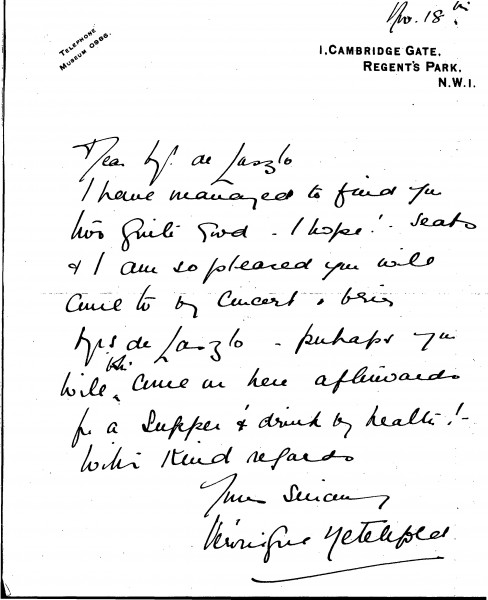 Nov. 18th.
TELEPHONE
MUSEUM 0986.
1, CAMBRIDGE GATE,
REGENT'S PARK,
N.W.1.
Dear Mr. de Laszlo
I have managed to find you
two quite good - I hope! - seats
& I am so pleased you will
come to my concert & bring
Mrs de Laszlo - perhaps you
will both come on here afterwards
for a supper & drink my health! -
with kind regards
Yours Sincerely
Véronique